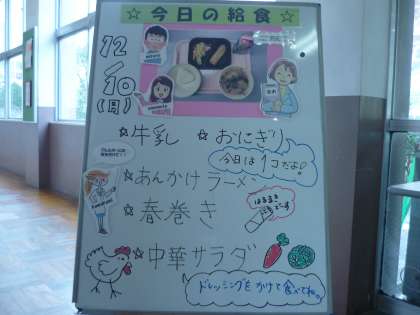 ☆今日の給食☆
12/10(月)
☆牛乳 ☆おにぎり
今日は1コだよ!
☆あんかけラーメン
☆春巻き
はるまき
1本です
☆中華サラダ
ドレッシングをかけて食べてね。